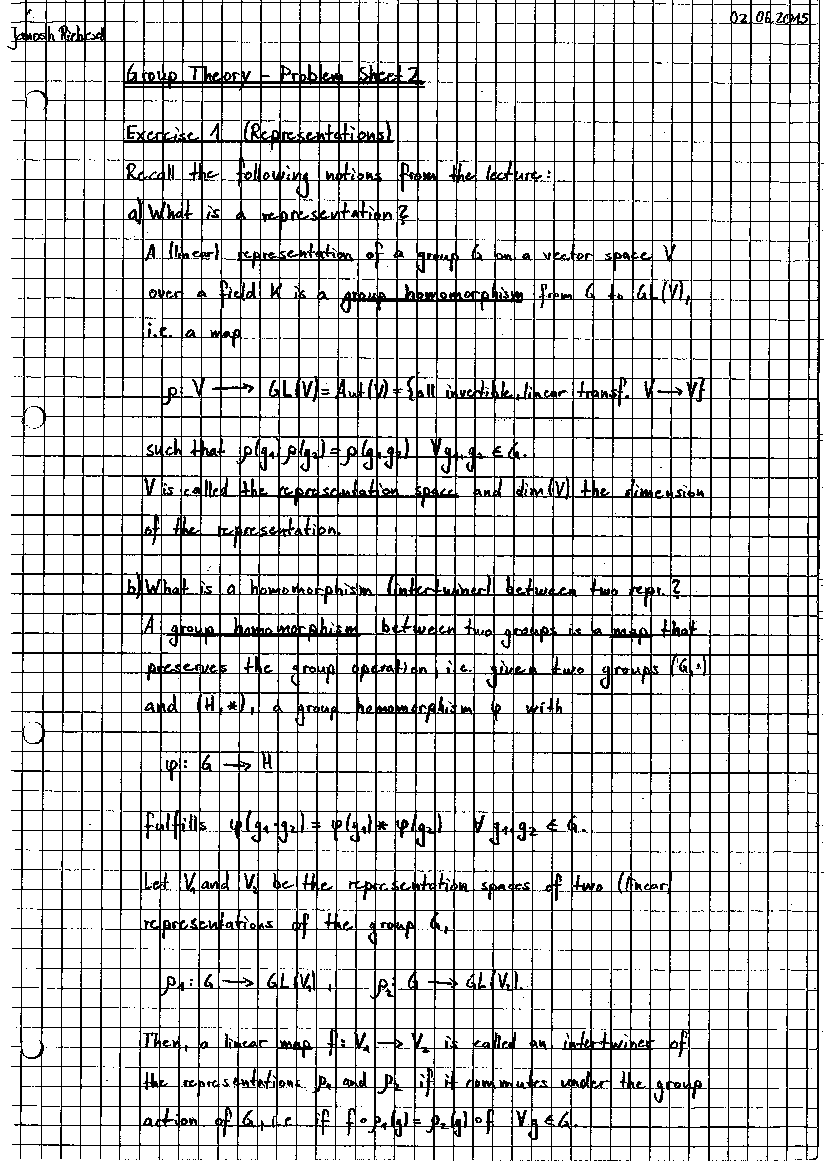 02.06.2015
Janosh Riebesell
Group Theory – Problem Sheet 2
Exercise 1 (Representations)
Recall the following notions from the lecture:
a) What is a representation?
A (linear) representation of a group G on a vector space V
over a field K is a group homomorphism from G to GL(V),
i.e. a map
ρ: V ⟶ GL(V) = Aut(V) = {all invertible, linear transf. V → V}
such that ρ(g₁) ρ(g₂) = ρ(g₁ g₂) ∀ g₁, g₂ ∈ G.
V is called the representation space and dim(V) the dimension
of the representation.
b) What is a homomorphism (intertwiner) between two repr.?
A group homomorphism between two groups is a map that
preserves the group operation, i.e. given two groups (G,·)
and (H,*), a group homomorphism φ with
φ: G ⟶ H
fulfills φ(g₁·g₂) = φ(g₁) * φ(g₂) ∀ g₁, g₂ ∈ G.
Let V₁ and V₂ be the representation spaces of two (linear)
representations of the group G,
ρ₁: G ⟶ GL(V₁), ρ₂: G ⟶ GL(V₂).
Then, a linear map f: V₁ → V₂ is called an intertwiner of
the representations ρ₁ and ρ₂ if it commutes under the group
action of G, i.e. if f ∘ ρ₁(g) = ρ₂(g) ∘ f ∀ g ∈ G.